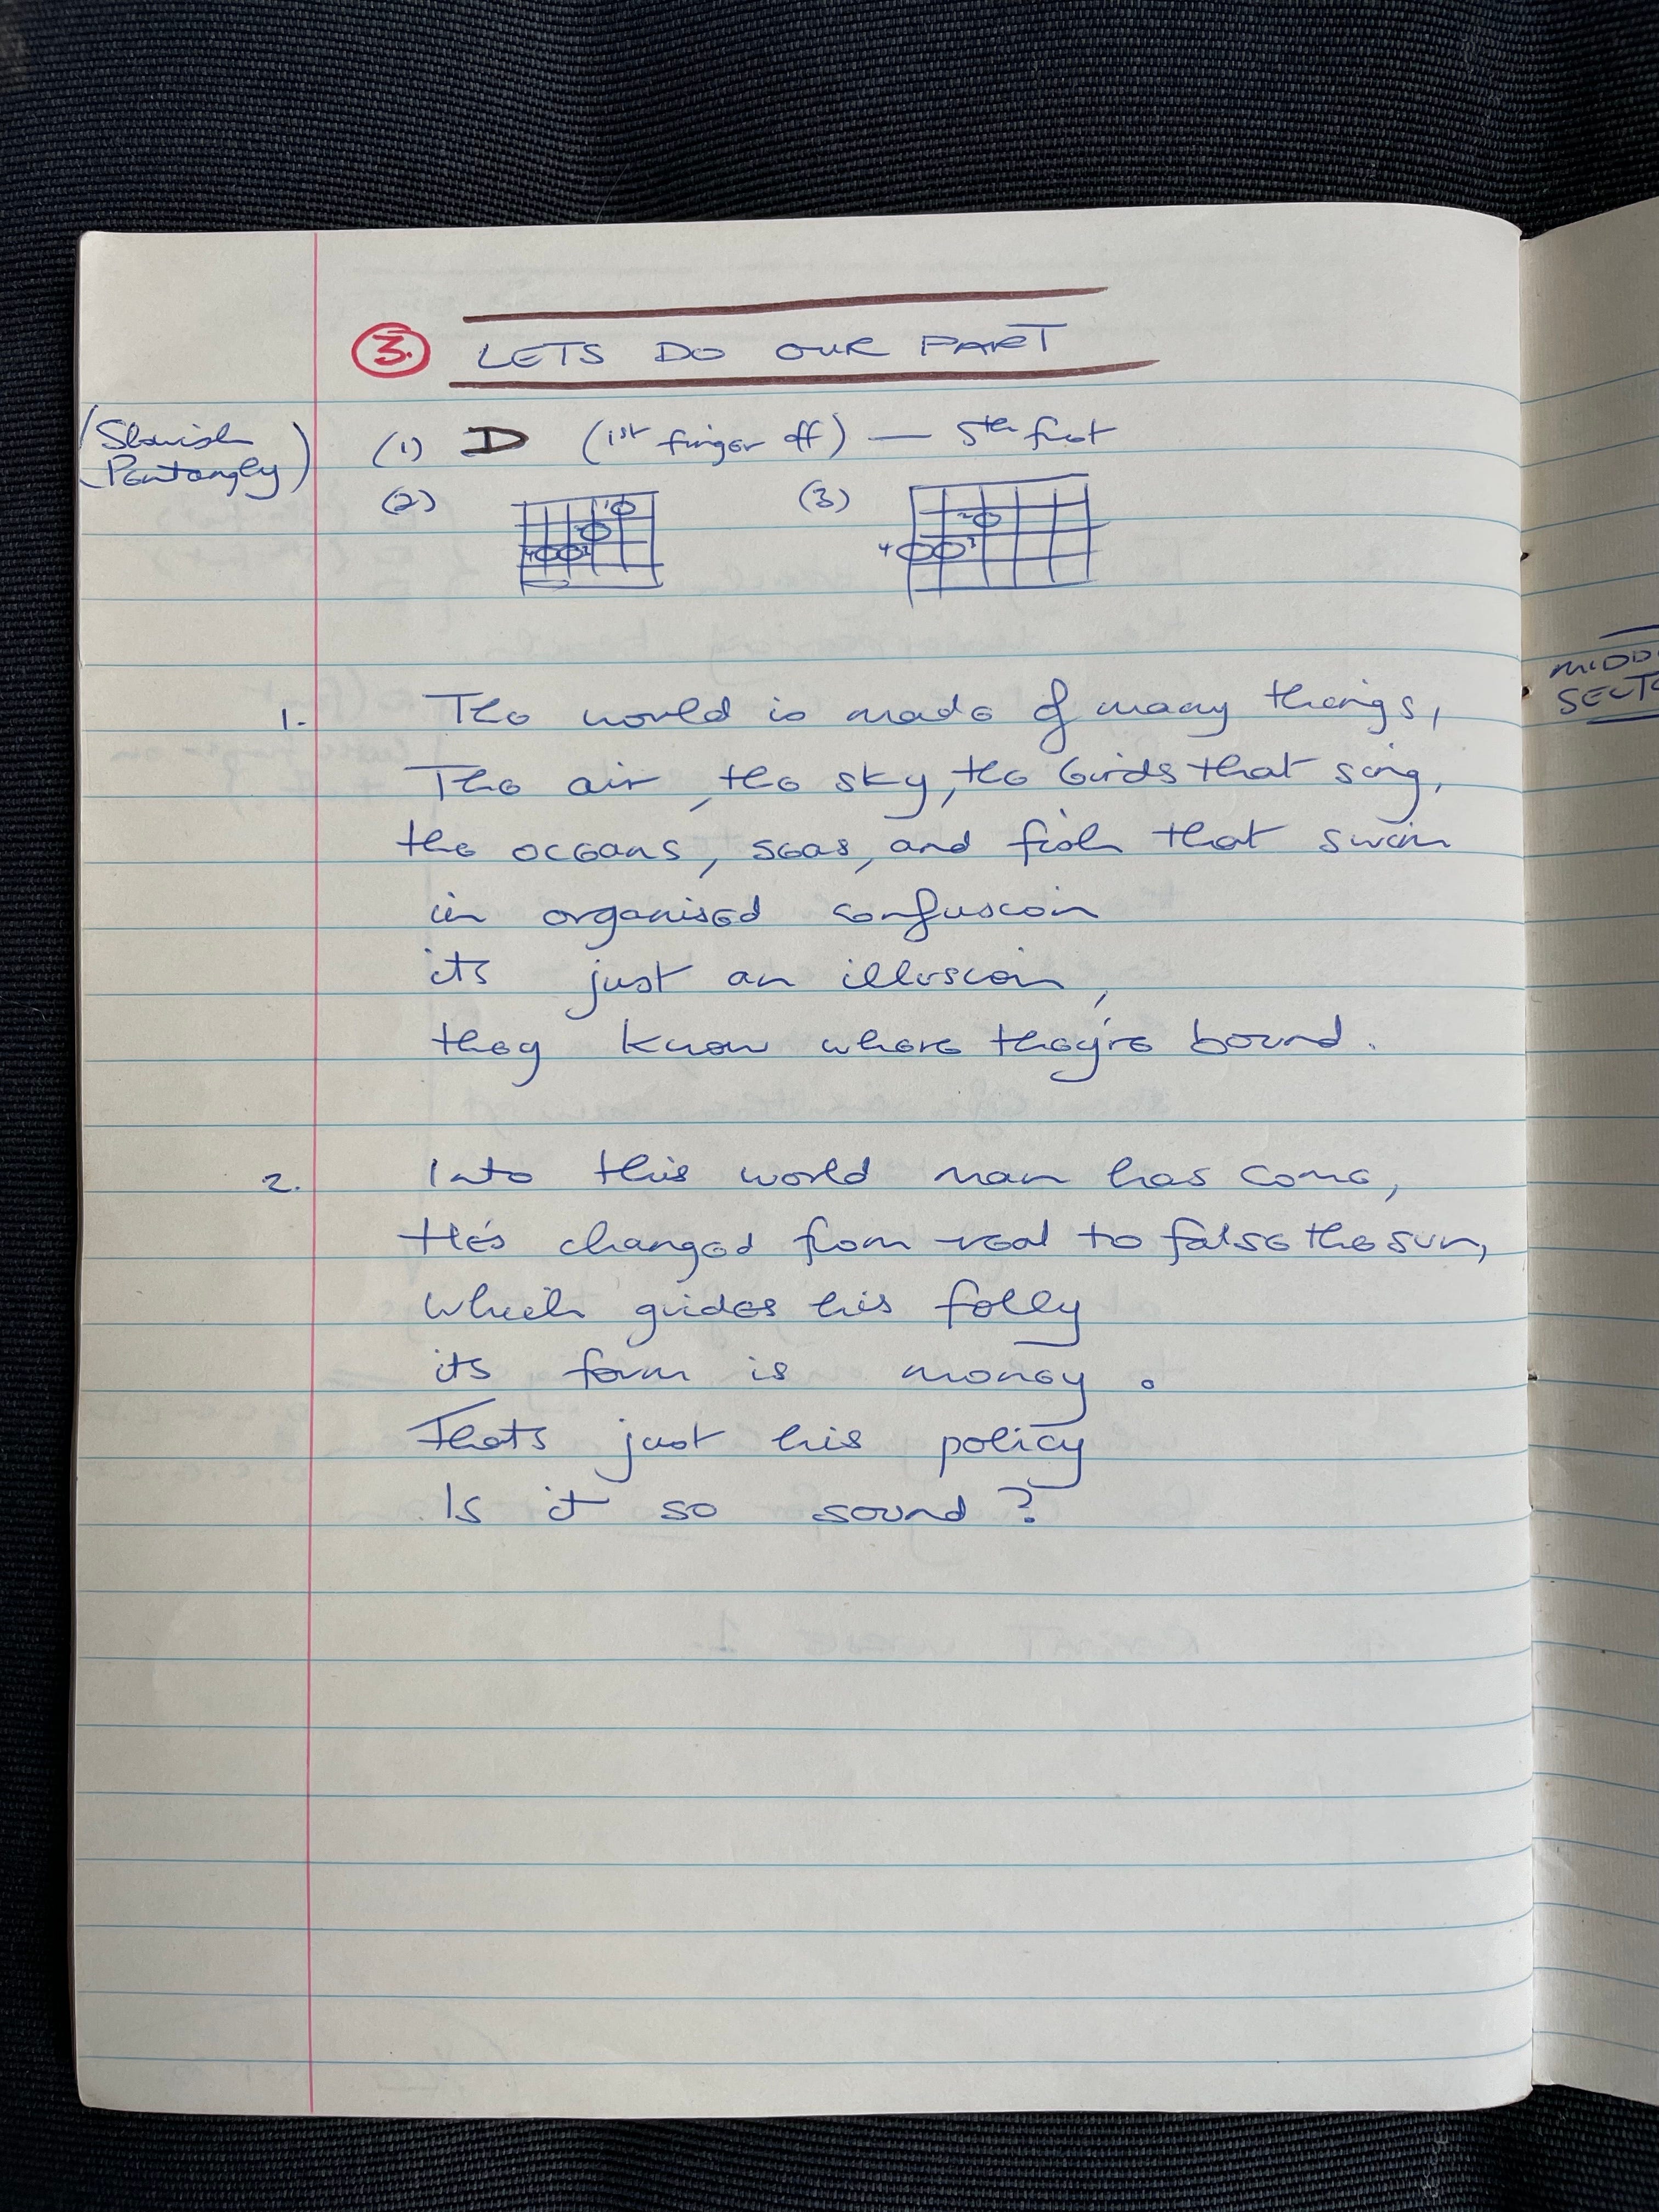 3. LETS DO OUR PART
(Slowish
Pentangly)
(1) D (1st finger off) — 5th fret
(2) (3)
1 2 4 3
2 4 3
1. The world is made of many things,
The air, the sky, the birds that sing,
the oceans, seas, and fish that swim
in organised confusion
its just an illusion,
they know where they're bound.
2. Into this world man has come,
He's changed from real to false the sun,
which guides his folly
its form is money.
Thats just his policy
Is it so sound?
MIDD
SECT